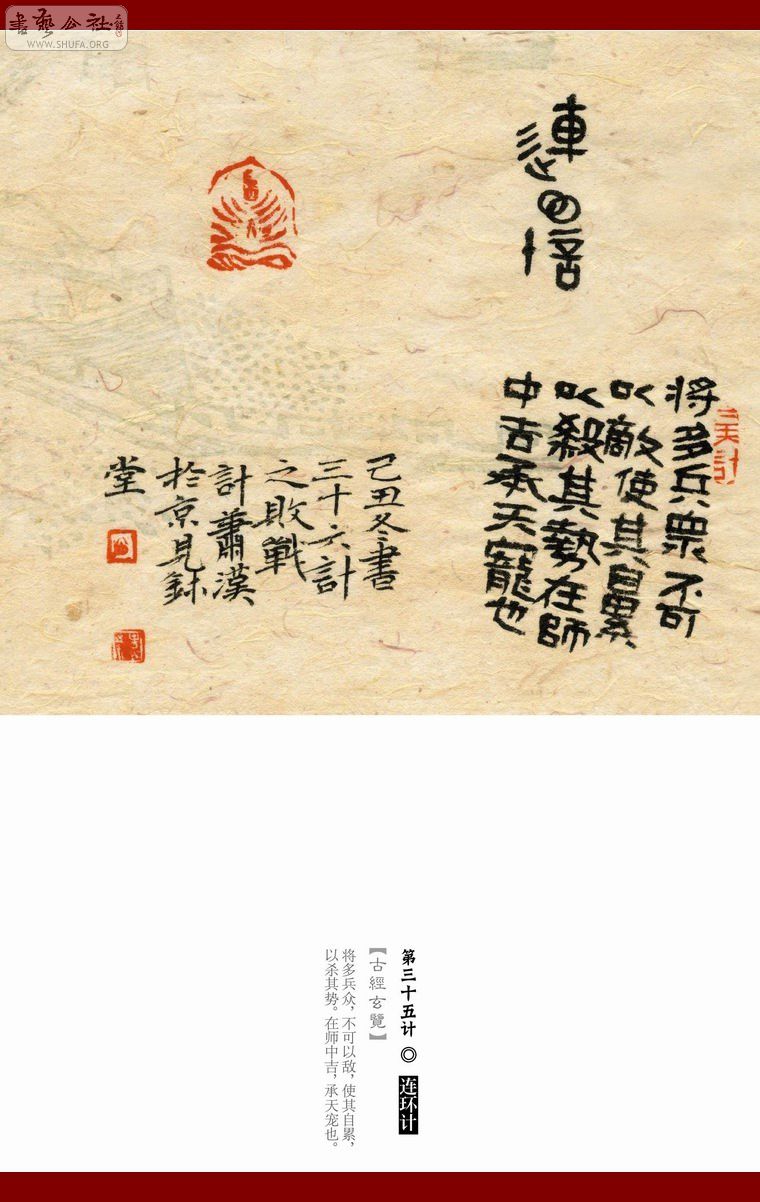 書藝公社
WWW.SHUFA.ORG
連環計
将多兵衆不可
以敵使其自累
以殺其勢在師
中吉承天寵也
己丑冬書
三十六計
之敗戰
計蕭漢
於京見鉥
堂
第三十五计 ◎ 连环计
【古經玄覽】
将多兵众，不可以敌，使其自累，
以杀其势。在师中吉，承天宠也。